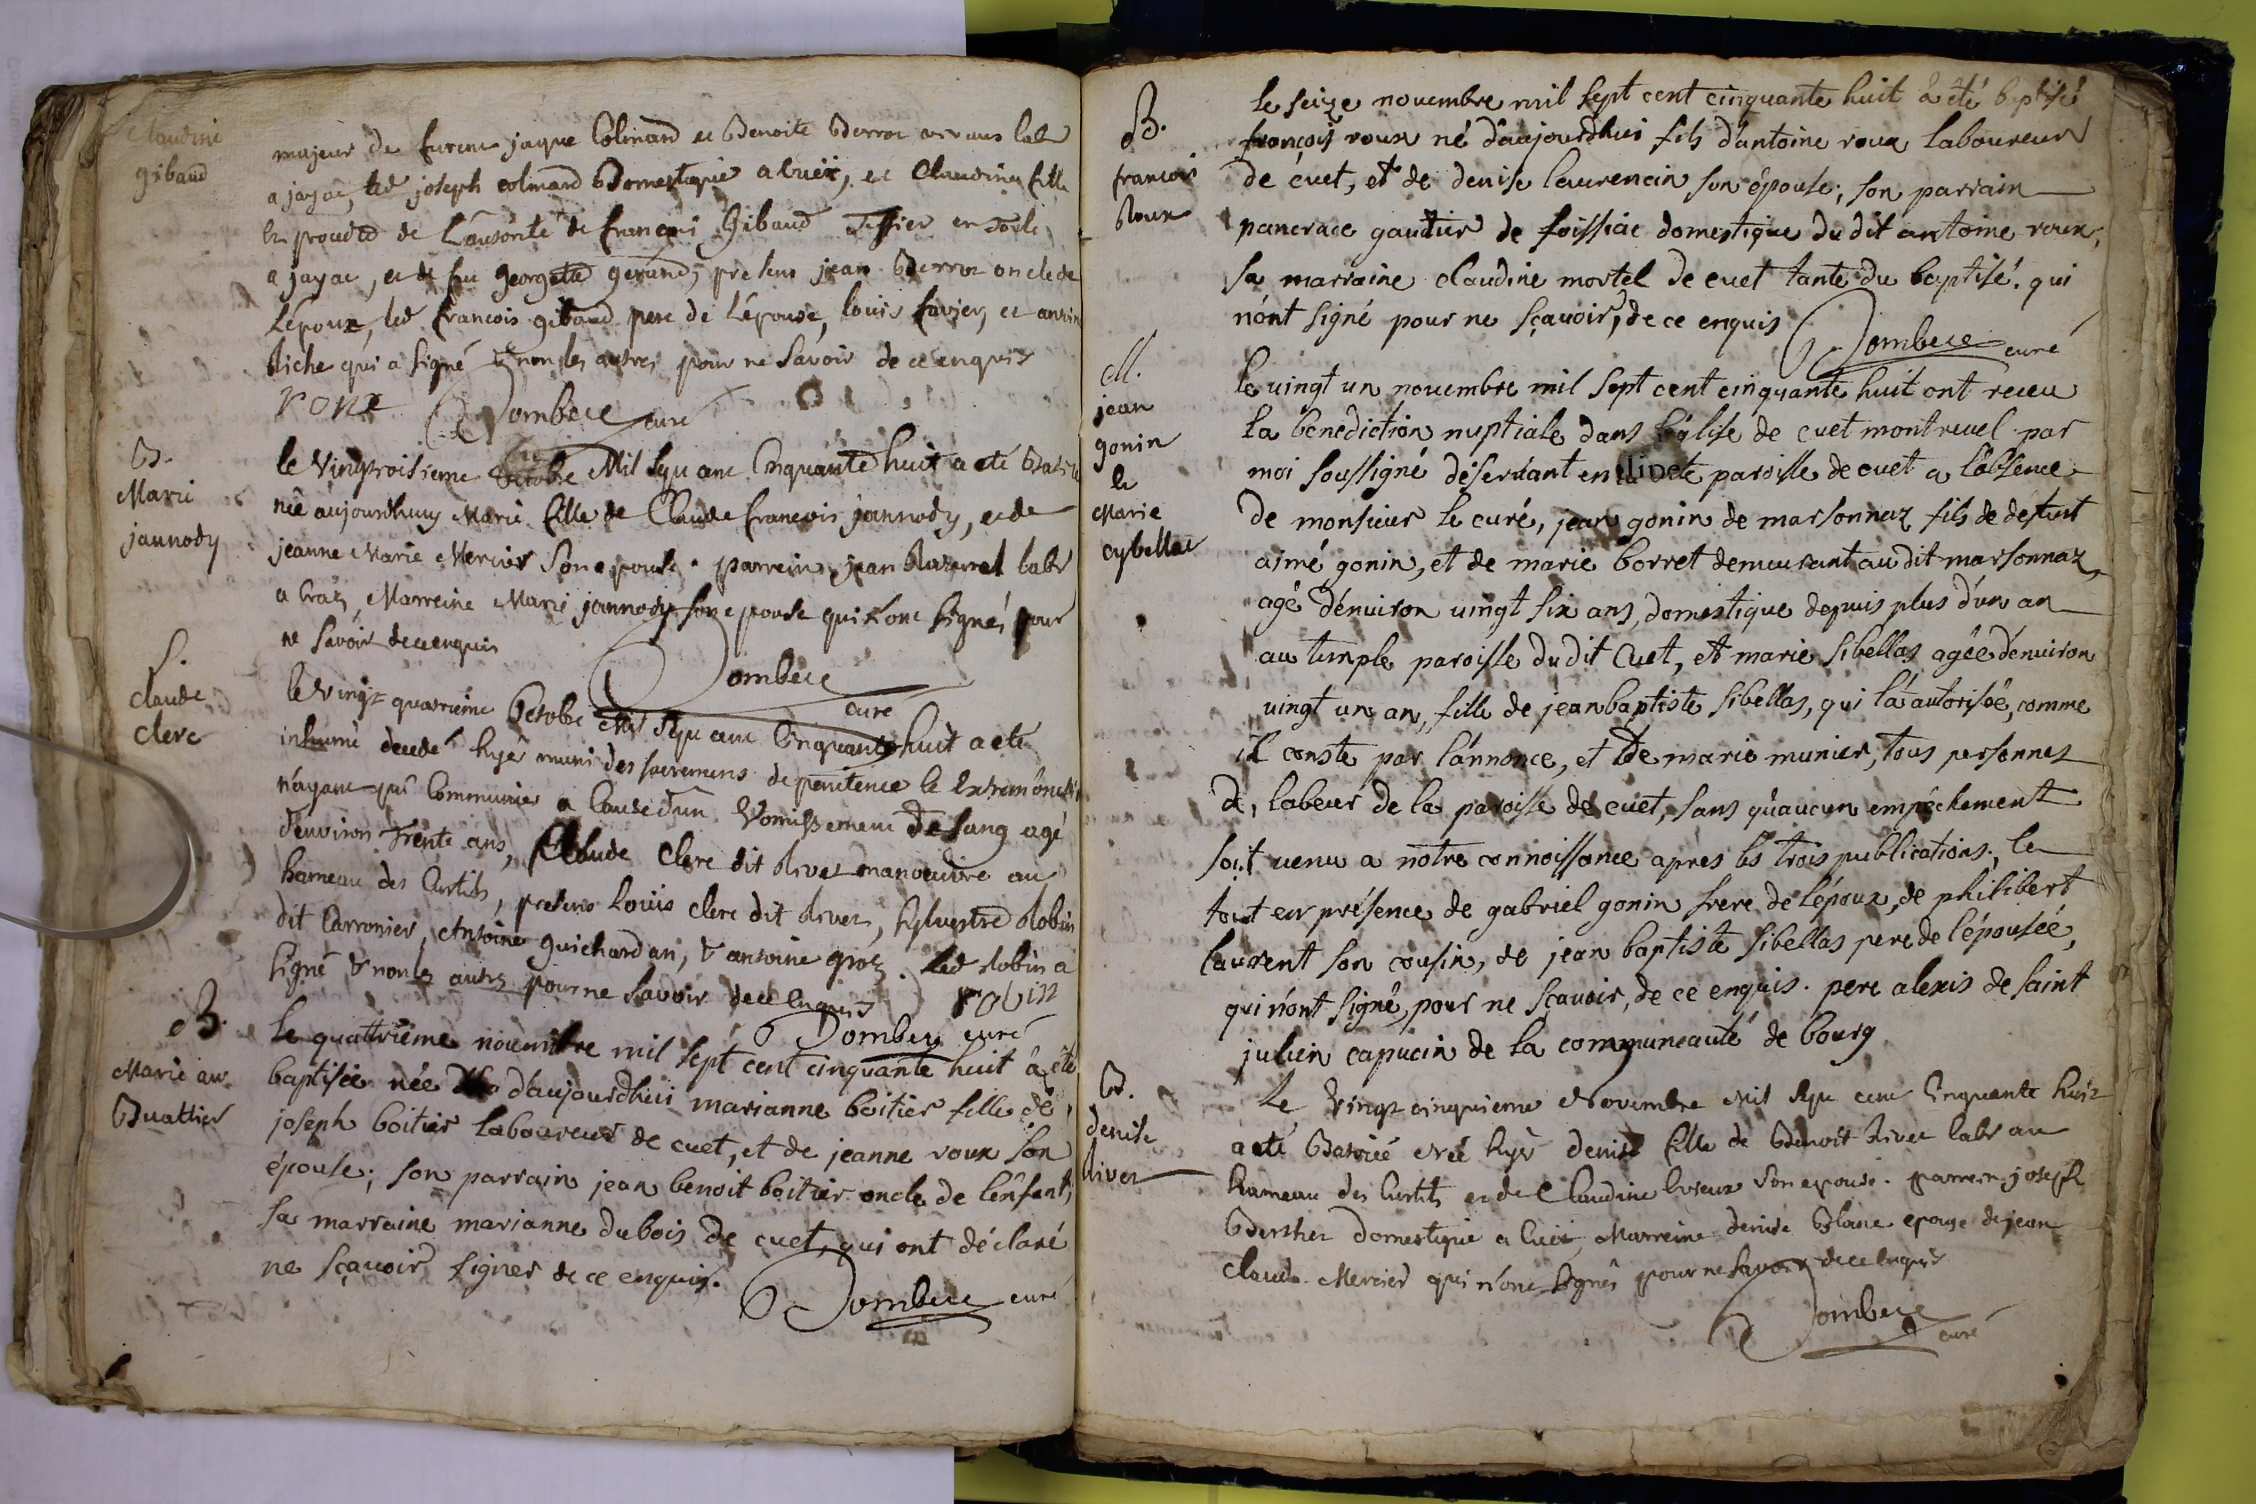 Claudine
gibaud
majeur de furent jaque Colinand et Benoite Berrod vivans labr
a jayac, led joseph colinand Domestique a Cuet, et Claudine fille
de françois Gibaud Tissier en toile
a jayac, et de fut georgette gerand, presens jean Berrod oncle de
L'époux, led francois gibaud pere de L'épouse, louis favier, et
qui a signé & non les autres pour ne savoir de ce enquis
roux Dombece curé
B.
Marie
jannody
le Vingtroisieme octobre Mil Sept cent Cinquante huit a eté
née aujourdhuy Marie fille de Claude francois jannody, et de
jeanne Marie Mercier Son epouse. parrein jean labr
a Craz, Marreine Marie jannody son epouse qui n'ont signés pour
ne savoir de ce enquis
Dombece
curé
S.
Claude
Clerc
le Vingt quatrieme Octobre Mil Sept cent Cinquante huit a eté
inhumé decedé hyer muni des sacremens de penitence &
n'ayant pu Communier a Cause d'un Vomissement de sang agé
d'environ Trente ans, Claude Clerc dit Rivet manoeuvre au
hameau des Curtils, presens Louis clerc dit Rivet, Sylvestre Robin
dit Carronier, Antoine guichardan, & antoine groz. Led Robin a
signé & non les autres pour ne savoir de ce enquis robin
Dombece curé
B.
Marie an
Buattier
Le quattriéme novembre mil sept cent cinquante huit à été
baptisée née d'aujourdhui marianne boitier fille de
joseph boitier laboureur de cuet, et de jeanne roux son
épouse; son parrain jean benoit boitier oncle de l'enfant,
sa marraine marianne dubois de cuet, qui ont déclaré
ne sçavoir signer de ce enquis.
Dombece curé
B.
francois
Roux
le seize novembre mil sept cent cinquante huit à été baptisé
françois roux né d'aujourdhui fils d'antoine roux laboureur
de cuet, et de denise laurencin son épouse; son parrain
pancrace gautier de foissiac domestique du dit antoine roux,
sa marraine claudine mortel de cuet tante du baptisé. qui
n'ont signé pour ne sçavoir, de ce enquis
Dombece curé
M.
jean
gonin
&
Marie
cybellas
le vingt un novembre mil sept cent cinquante huit ont receu
la bénédiction nuptiale dans l'église de cuet montrevel par
moi soussigné désservant en paroisse de cuet a l'absence
de monsieur le curé, jean gonin de marsonnaz fils de défunt
aimé gonin, et de marie borret demeurant au dit marsonnaz,
agé d'énuiron vingt six ans, domestique depuis plus d'un an
au temple paroisse du dit Cuet, et marie sibellas agée d'énuiron
vingt un an, fille de jean baptiste sibellas, qui l'a autorisée, comme
il conste par l'annonce, et de marie munier, tous personnes
de labeur de la paroisse de cuet, sans qu'aucun empéchement
soit venu a nôtre connoissance après les trois publications; le
tout en présence de gabriel gonin frere de l'époux, de philibert
laurent son cousin, de jean baptiste sibellas pere de l'épousée,
qui n'ont signé, pour ne sçavoir, de ce enquis. pere alexis de saint
julien capucin de la communeauté de bourg
B.
denise
Rivet
Le Vingt cinquieme Novembre Mil Sept cent Cinquante huit
a eté Batisée Née hyer denise fille de Benoit Rivet labr au
hameau des Curtils et de Claudine Son epouse. parrein joseph
Berthet Domestique a Cuet, Marreine denise Blanc epouse de jean
Claude Mercier qui n'ont signés pour ne savoir de ce enquis
Dombece
curé